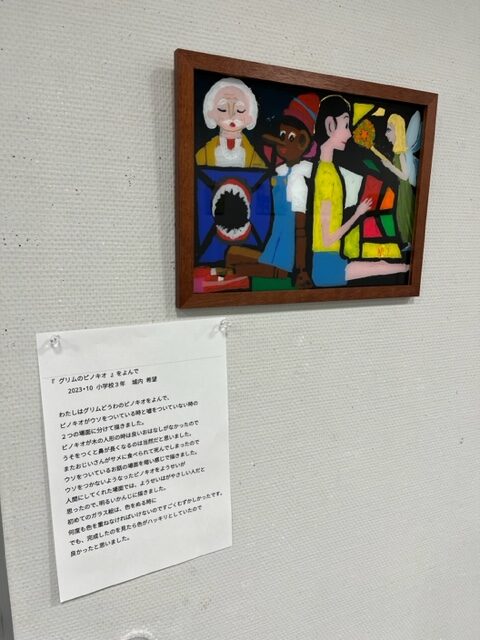 『 グリムのピノキオ 』をよんで
2023・10 小学校3年 城内 希望
わたしはグリムどうわのピノキオをよんで、
ピノキオがウソをついている時と嘘をついていない時の
2つの場面に分けて描きました。
ピノキオが木の人形の時は良いおはなしがなかったので
うそをつくと鼻が長くなるのは当然だと思いました。
またおじいさんがサメに食べられて死んでしまったので
ウソをついているお話の場面を暗い感じで描きました。
ウソをつかないようなったピノキオをようせいが
人間にしてくれた場面では、ようせいはがやさしい人だと
思ったので、明るいかんじに描きました。
初めてのガラス絵は、色をぬる時に
何度も色を重ねなければいけないのですごくむずかしかったです。
でも、完成したのを見たら色がハッキリとしていたので
良かったと思いました。